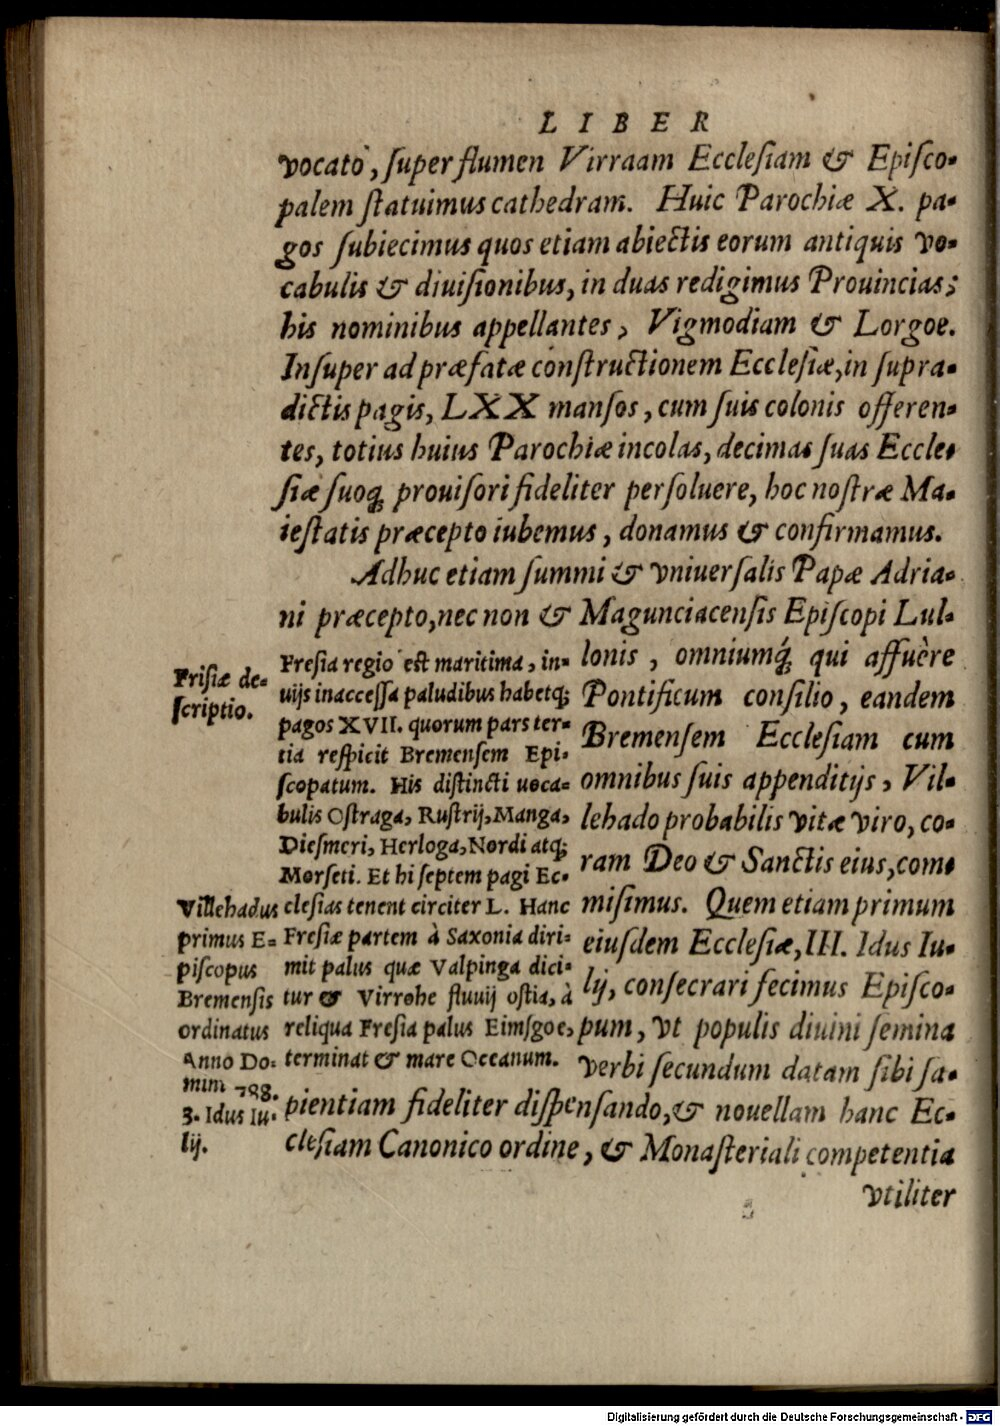 LIBER
vocato, super flumen Virraam Ecclesiam & Episco-
palem statuimus cathedram. Huic Parochiæ X. pa-
gos subiecimus quos etiam abiectis eorum antiquis vo-
cabulis & diuisionibus, in duas redigimus Prouincias;
his nominibus appellantes, Vigmodiam & Lorgoe.
Insuper ad præfatæ constructionem Ecclesiæ, in supra-
dictis pagis, LXX mansos, cum suis colonis offeren-
tes, totius huius Parochiæ incolas, decimas suas Eccle-
siæ suoq; prouisori fideliter persoluere, hoc nostræ Ma-
iestatis præcepto iubemus, donamus & confirmamus.
Adhuc etiam summi & vniuersalis Papæ Adria-
ni præcepto, nec non & Magunciacensis Episcopi Lul-
lonis, omniumq́; qui affuère
Pontificum consilio, eandem
Bremensem Ecclesiam cum
omnibus suis appenditijs, Vil-
lehado probabilis vitæ viro, co-
ram Deo & Sanctis eius, com-
misimus. Quem etiam primum
eiusdem Ecclesiæ, III. Idus Iu-
lij, consecrari fecimus Episco-
pum, vt populis diuini semina
verbi secundum datam sibi sa-
pientiam fideliter dispensando, & nouellam hanc Ec-
clesiam Canonico ordine, & Monasteriali competentia
vtiliter
Frisiæ de-
scriptio.
Fresia regio est maritima, in-
uijs inaccessa paludibus habetq;
pagos XVII. quorum pars ter-
tia respicit Bremensem Epi-
scopatum. His distincti uoca-
bulis Ostraga, Rustrij, Manga,
Diesmeri, Herloga, Nordi atq;
Morseti. Et hi septem pagi Ec-
clesias tenent circiter L. Hanc
Fresiæ partem à Saxonia diri-
mit palus quæ Valpinga dici-
tur & Virrohe fluuij ostia, à
reliqua Fresia palus Eimsgoe,
terminat & mare Oceanum.
Villehadus
primus E-
piscopus
Bremensis
ordinatus
Anno Do-
mini 788.
3. Idus Iu-
lij.
Digitalisierung gefördert durch die Deutsche Forschungsgemeinschaft - DFG